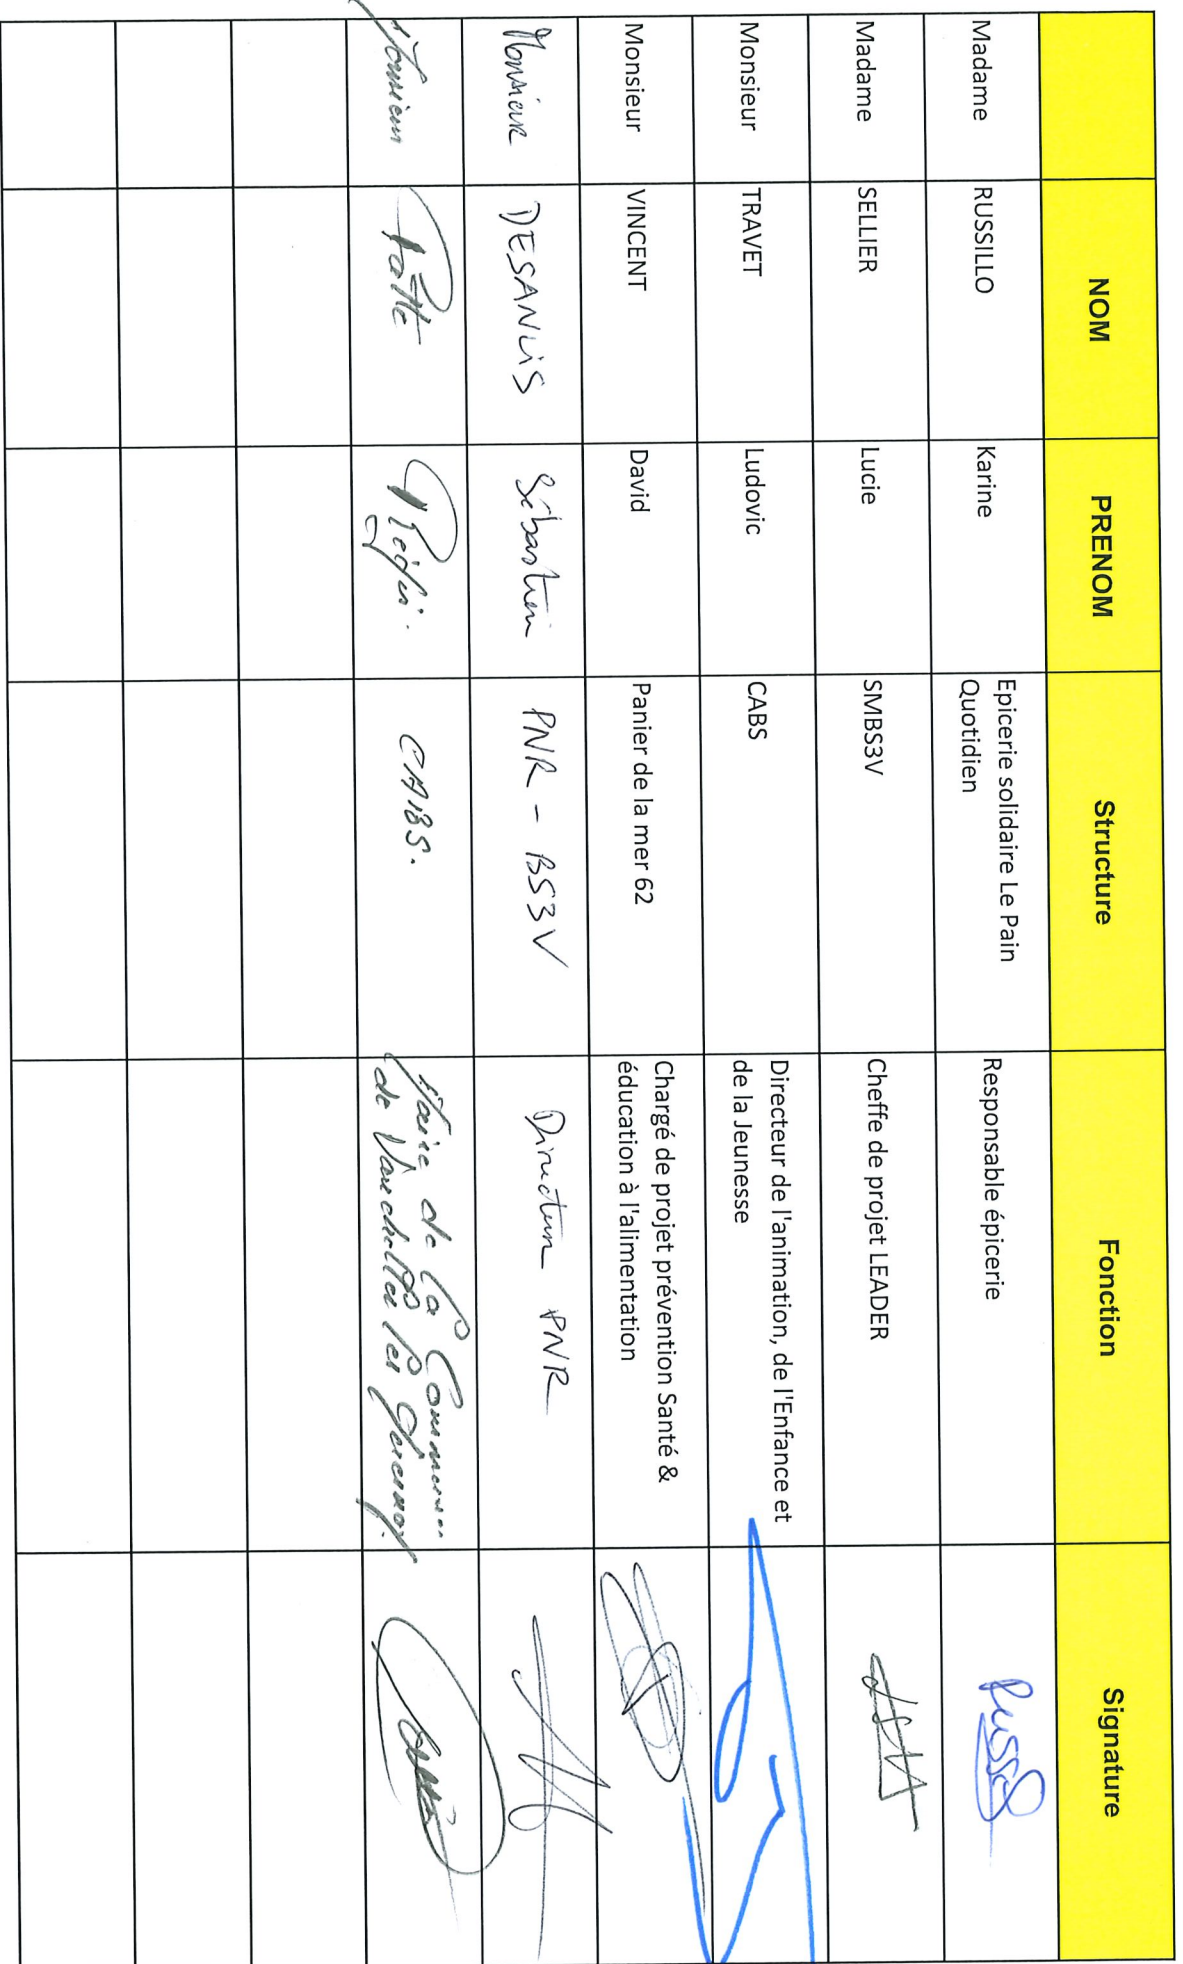 NOM PRENOM Structure Fonction Signature
Madame RUSSILLO Karine Epicerie solidaire Le Pain
Quotidien Responsable épicerie
Madame SELLIER Lucie SMBS3V Cheffe de projet LEADER
Monsieur TRAVET Ludovic CABS Directeur de l'animation, de l'Enfance et
de la Jeunesse
Monsieur VINCENT David Panier de la mer 62 Chargé de projet prévention Santé &
éducation à l'alimentation
Monsieur DESANLIS Sébastien PNR - BS3V Directeur PNR
Monsieur Patte Régis. CABS. Maire de la Commune
de Vauchelles les Quesnoy.